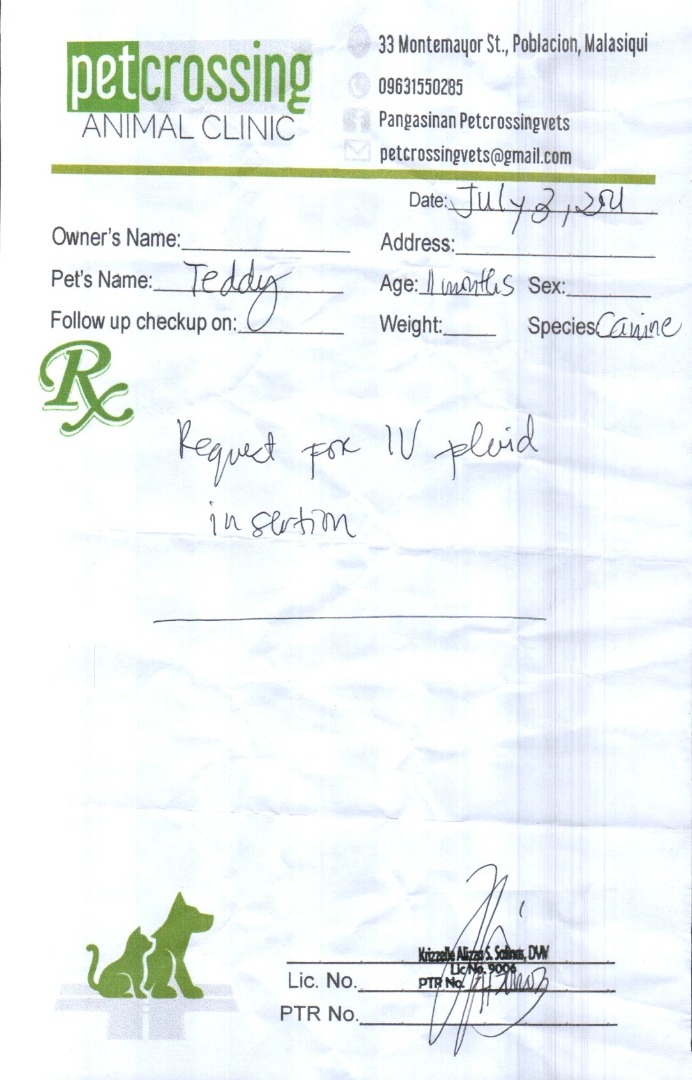 petcrossing
ANIMAL CLINIC
33 Montemayor St., Poblacion, Malasiqui
09631550285
Pangasinan Petcrossingvets
petcrossingvets@gmail.com
Date: July 3,
Owner's Name:
Address:
Pet's Name: Teddy
Age: 11 months Sex:
Follow up checkup on:
Weight: Species Canine
Rx
Request for IV fluid
insertion
Krizzelle S. DVM
Lic No. 9006
Lic. No.
PTR No.
PTR No.